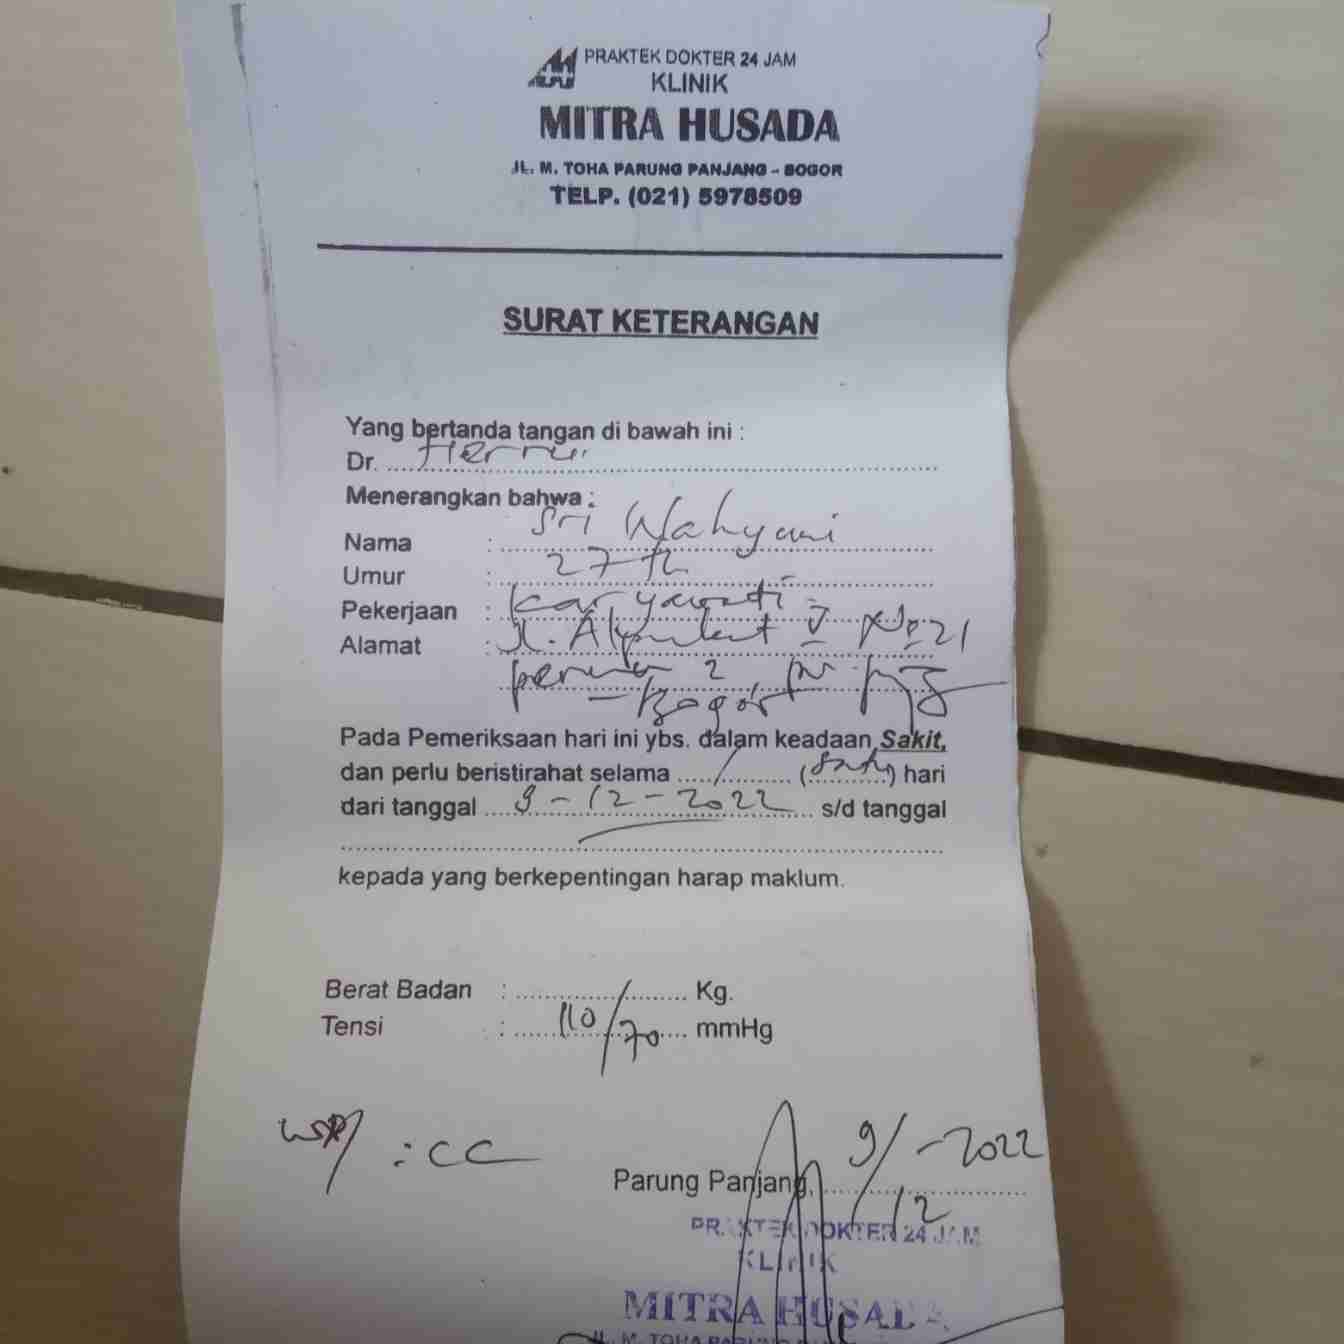 PRAKTEK DOKTER 24 JAM
KLINIK
MITRA HUSADA
JL. M. TOHA PARUNG PANJANG - BOGOR
TELP. (021) 5978509
SURAT KETERANGAN
Yang bertanda tangan di bawah ini :
Dr. Herru
Menerangkan bahwa :
Nama : Sri Wahyuni
Umur : 27 th
Pekerjaan : karyawati
Alamat : Jl. No 21
2
Bogor
Pada Pemeriksaan hari ini ybs. dalam keadaan Sakit,
dan perlu beristirahat selama 1 (satu) hari
dari tanggal 9-12-2022 s/d tanggal
kepada yang berkepentingan harap maklum.
Berat Badan : Kg.
Tensi : 110/70 mmHg
: CC
Parung Panjang, 9/12-2022
PRAKTEK DOKTER 24 JAM
KLINIK
MITRA HUSADA
JL. M. TOHA PARUNG